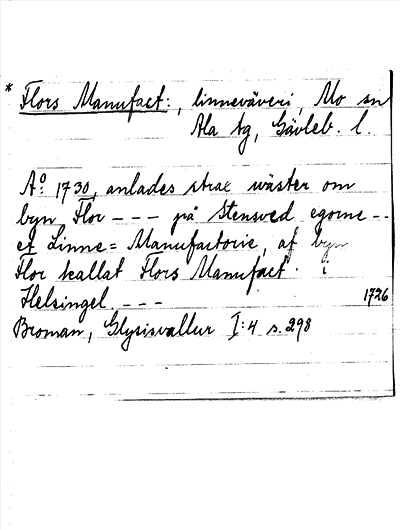 * Flors Manufact:, linneväveri, Mo sn
Ala tg, Gävleb. l.
Aº: 1730, anlades strax wäster om
byn Flor - - - på Stensved egorne - -
et Linne= Manufactorie, af byn
Flor kallat Flors Manufact. i
Helsingel. - - - 1726
Broman, Glysisvallur I:4 s. 298